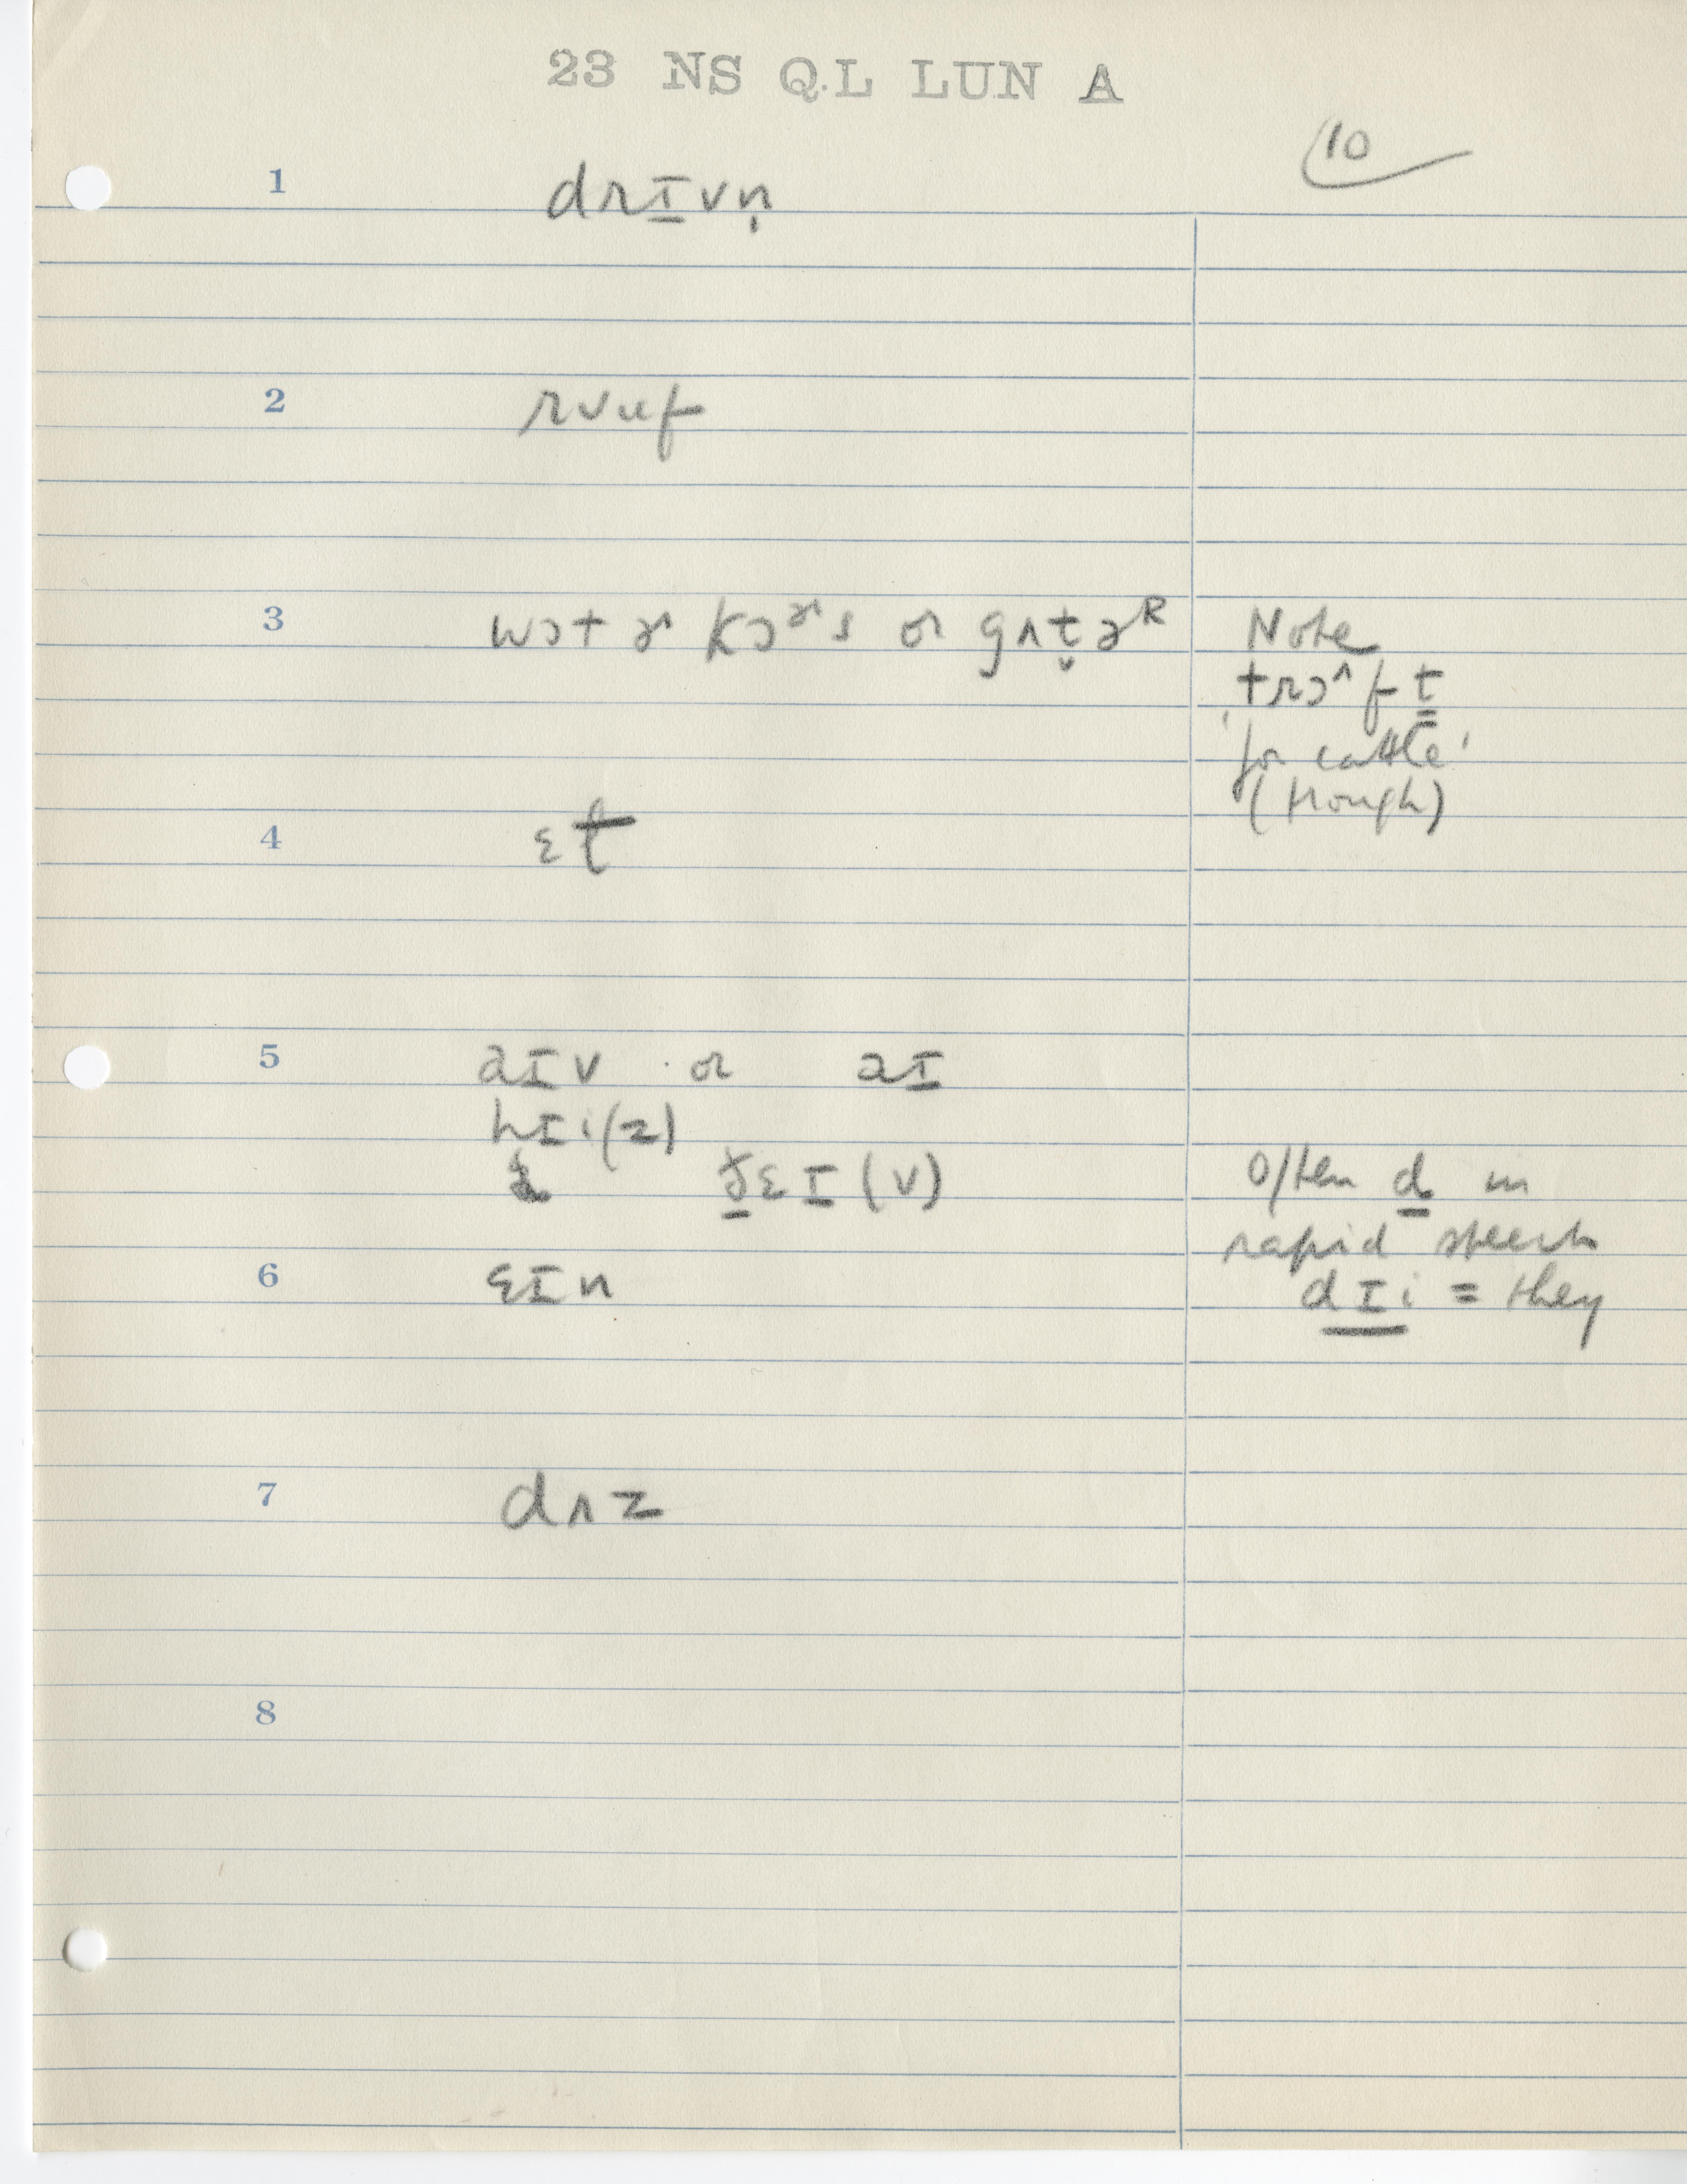 23 NS Q.L LUN A
10
1 drɪ̱vn̩
2 rvuf
3 wɔtɚ kɔɚs or gʌt̬əᴿ
Note
trɔ^ft̲
'for cattle'
(trough)
4 ɛt
5 aɪv or aɪ̲
hɪi(z)
ɛɪ(v)
Often d̲ in
rapid speech
dɪi = they
6 ɛɪn
7 dʌz
8